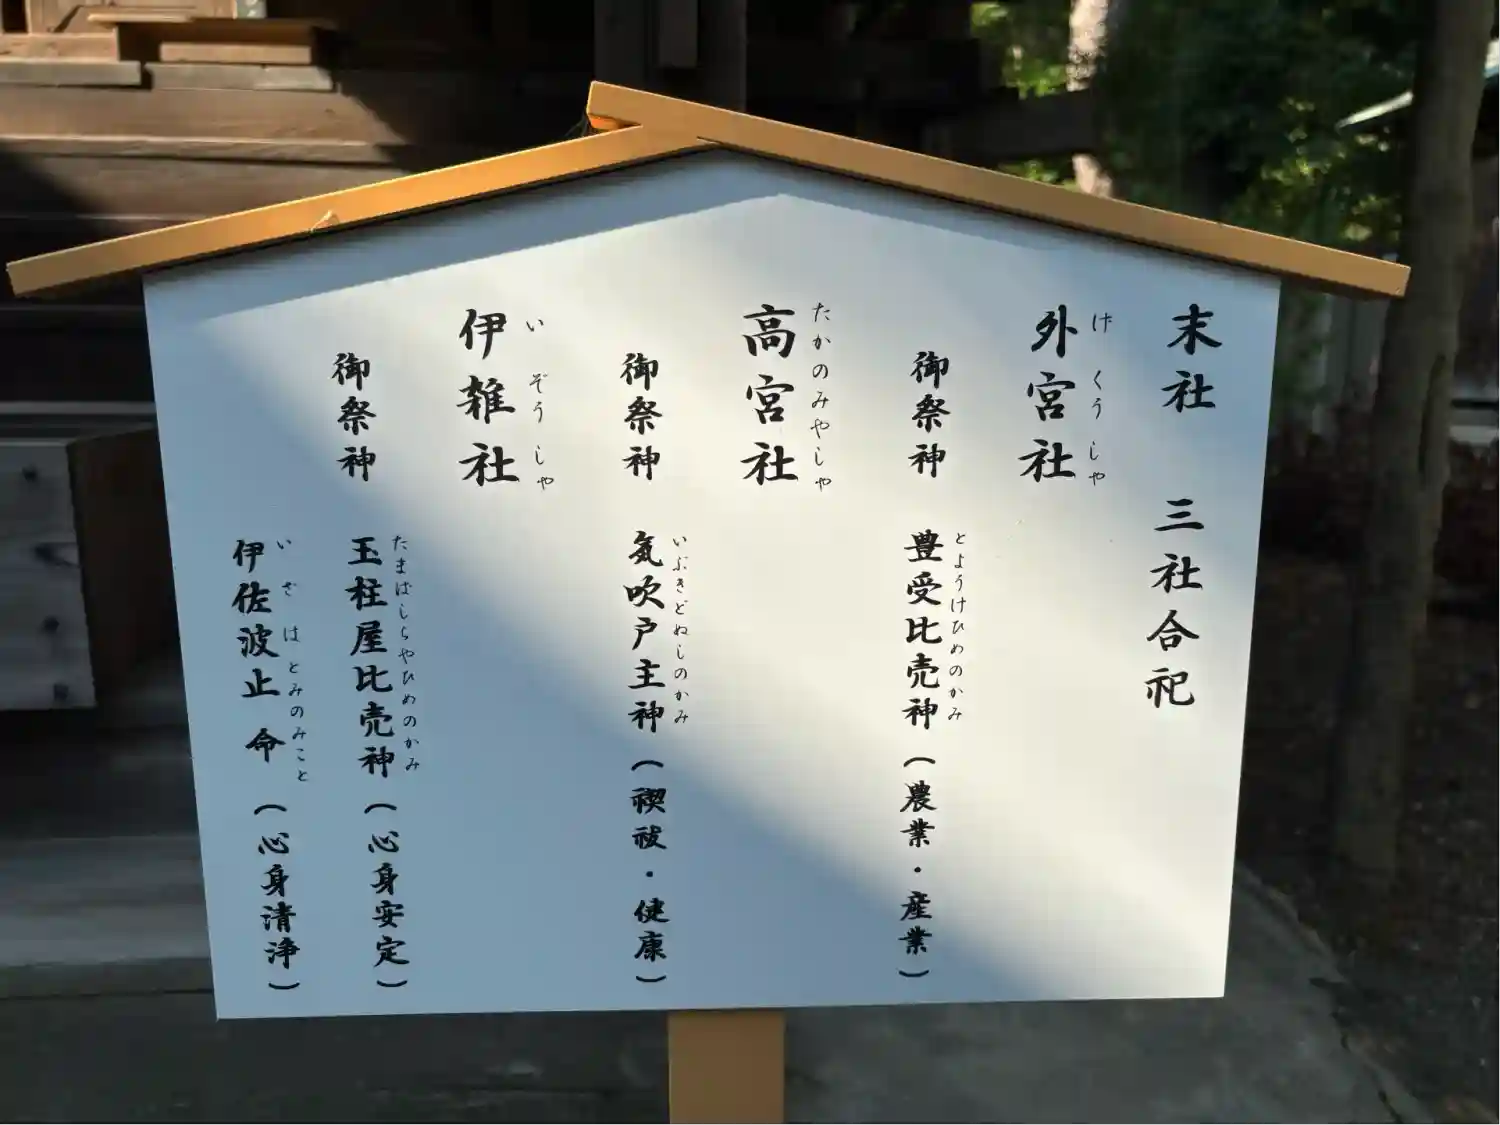 末社 三社合祀
外宮社
げくうしゃ
御祭神 豊受比売神（農業・産業）
とようけひめのかみ
高宮社
たかのみやしゃ
御祭神 気吹戸主神（禊祓・健康）
いぶきどぬしのかみ
伊雑社
いぞうしゃ
御祭神 玉柱屋比売神（心身安定）
たまばしらやひめのかみ
伊佐波止命（心身清浄）
いざはとみのみこと